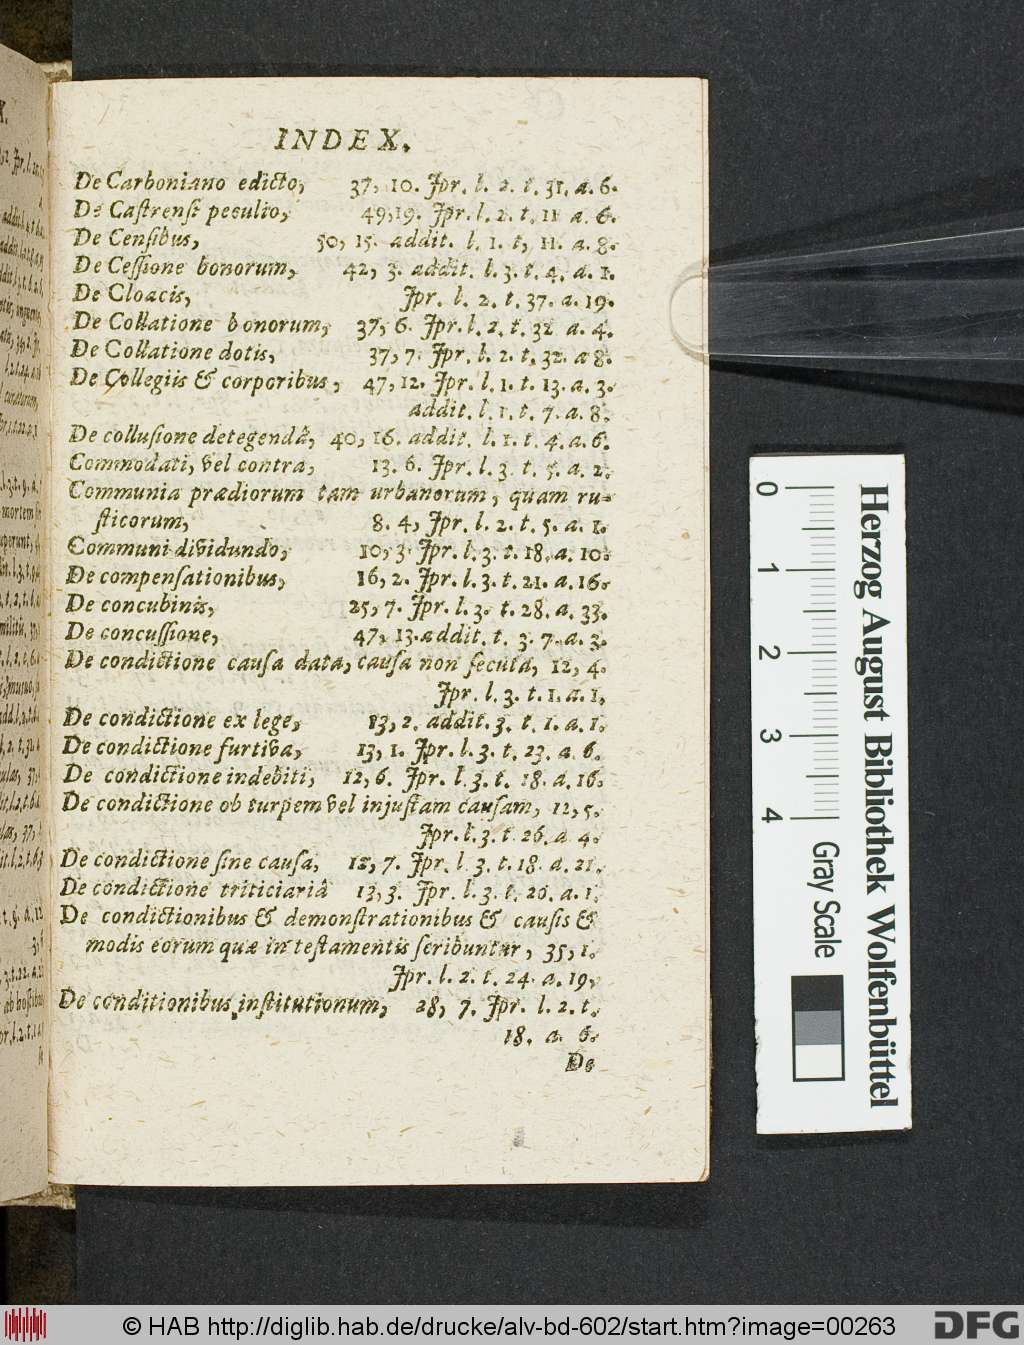 INDEX.
De Carboniano edicto, 37, 10. Jpr. l. 2. t. 31. a. 6.
De Caſtrenſi peculio, 49,19. Jpr. l. 2. t. 11 a. 6.
De Cenſibus, 50, 15. addit. l. 1. t, 11. a. 8.
De Ceſſione bonorum, 42, 3. addit. l. 3. t. 4. a. 1.
De Cloacis, Jpr. l. 2. t. 37. a. 19.
De Collatione bonorum, 37, 6. Jpr. l. 2. t. 32 a. 4.
De Collatione dotis, 37, 7. Jpr. l. 2. t. 32. a 8.
De Collegiis & corporibus, 47, 12. Jpr. l. 1. t. 13. a. 3.
addit. l. 1. t. 7. a. 8.
De colluſione detegendâ, 40, 16. addit. l. 1. t. 4. a. 6.
Commodati, vel contra, 13. 6. Jpr. l. 3. t. 5. a. 2.
Communia prædiorum tam urbanorum, quam ru-
ſticorum, 8. 4, Jpr. l. 2. t. 5. a. 1.
Communi dividundo, 10, 3. Jpr. l. 3. t. 18. a. 10.
De compenſationibus, 16, 2. Jpr. l. 3. t. 21. a. 16.
De concubinis, 25, 7. Jpr. l. 3. t. 28. a. 33.
De concuſſione, 47, 13. addit. t. 3. 7. a. 3.
De condictione cauſa data, cauſa non ſecuta, 12, 4.
Jpr. l. 3. t. 1. a. 1.
De condictione ex lege, 13, 2. addit. 3. t. 1. a. 1.
De condictione furtiva, 13, 1. Jpr. l. 3. t. 23. a. 6.
De condictione indebiti, 12, 6. Jpr. l. 3. t. 18. a. 16.
De condictione ob turpem vel injuſtam cauſam, 12, 5.
Jpr. l. 3. t. 26. a 4.
De condictione ſine cauſa, 12, 7. Jpr. l. 3. t. 18. a. 21.
De condictione triticiariâ 13, 3. Jpr. l. 3. t. 20. a. 1.
De condictionibus & demonſtrationibus & cauſis &
modis eorum quæ in teſtamentis ſcribuntur, 35, 1.
Jpr. l. 2. t. 24. a. 19.
De conditionibus inſtitutionum, 28, 7. Jpr. l. 2. t.
18. a. 6.
De
0 1 2 3 4
Gray Scale
Herzog August Bibliothek Wolfenbüttel
© HAB http://diglib.hab.de/drucke/alv-bd-602/start.htm?image=00263
DFG